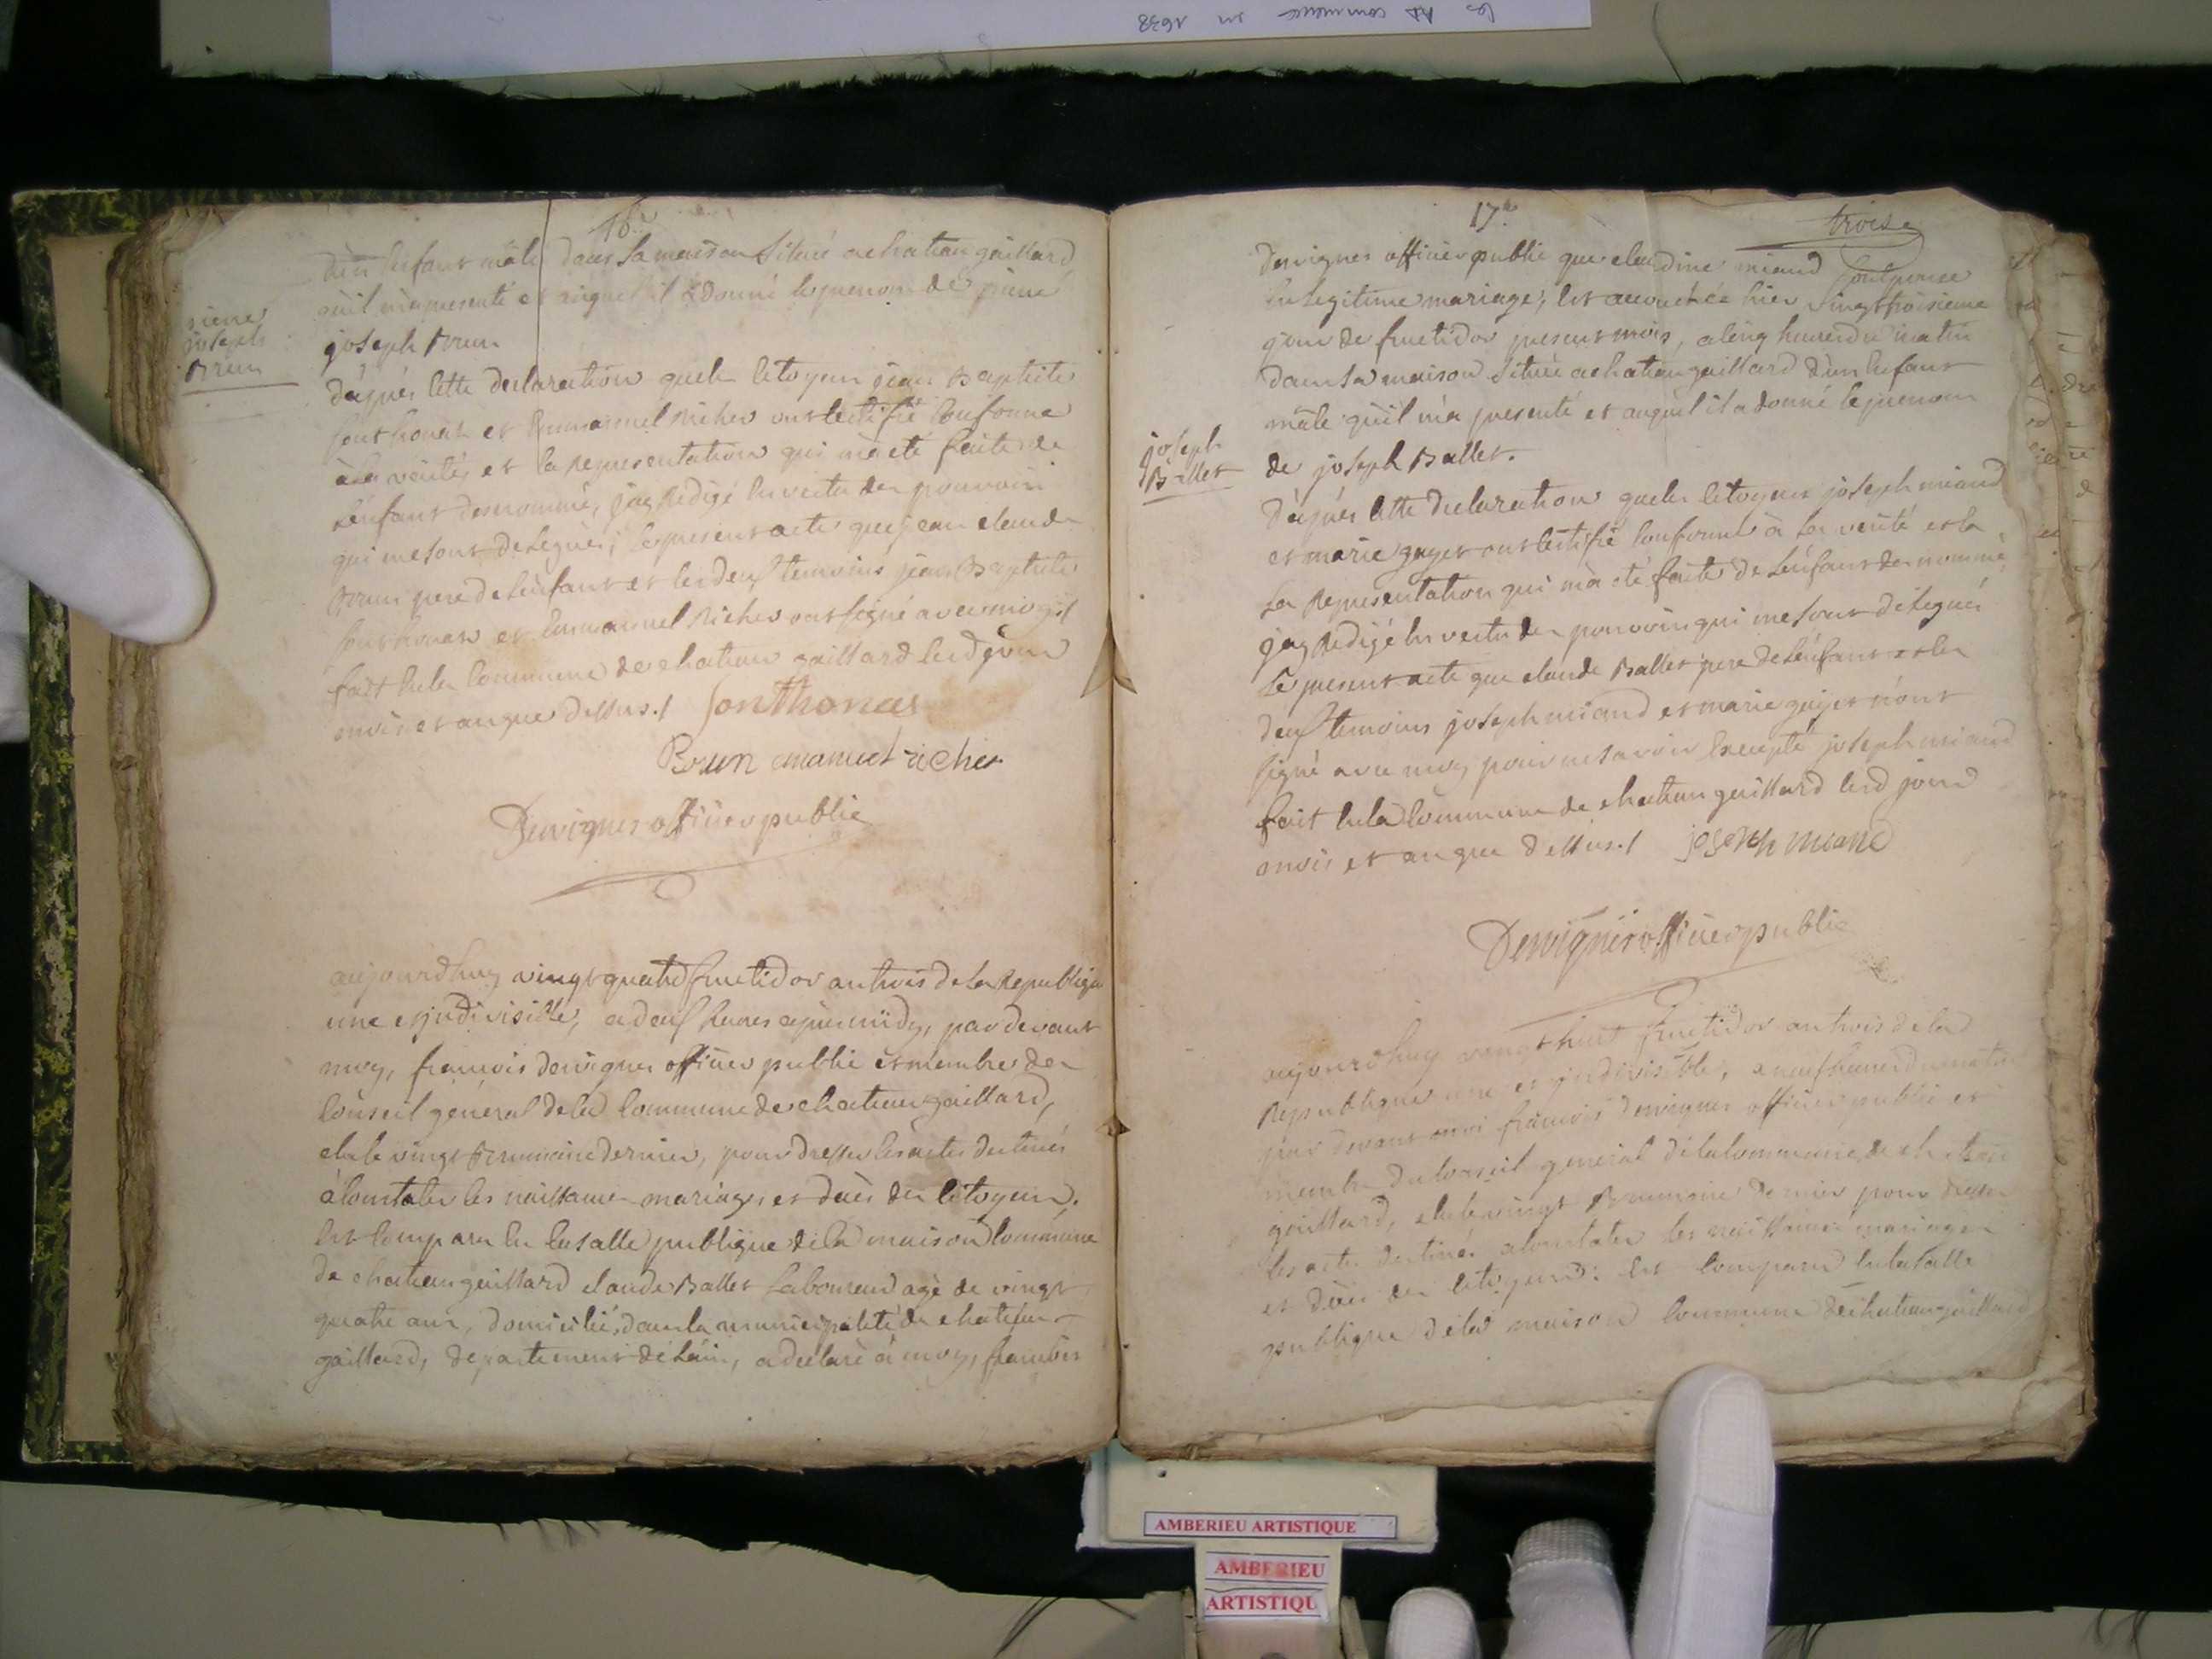 les commence en 1638
16.e
d'un Enfant mâle dans sa maison située a chateau gaillard
qu'il m'a presenté et auquel il a donné le prenom de pierre
joseph Brun
pierre
joseph
Brun
D'après cette declaration que les citoyens jean Baptiste
fonthonas et Emmanuel Richer ont certifié conforme
à la vérité, et la Representation qui m'a eté faite de
L'enfant denommé, j'ay Redigé En vertu des pouvoirs
qui me sont delegués, le present acte que jean claude
Brun pere de L'enfant et les deux temoins jean Baptiste
fonthonas et Emmanuel Richer ont signé avec moy
fait En la Commune de chateau gaillard lesd jour
mois et an que dessus./ fonthonas
Brun emanuel richer
Dervignes officier public
aujourdhuy vingt quatre fructidor an trois de la Republique
une et jndivisible, a deux heures après midy, par devant
moy, francois dervignes officier public et membre du
Conseil général de la Commune de chateau gaillard,
elu le vingt Brumaire dernier, pour dresser les actes destinés
à Constater les naissances mariages et décès des Citoyens.
Est Comparu En la salle publique de la maison Commune
de chateau gaillard claude Ballet Laboureur agé de vingt
quatre ans, domicilié, dans la municipalité de chateau
gaillard, departement de L'ain, a declaré à moy, francois
17.e
troise
dervignes officier public que claudine miand son Epouse
En legitime mariage, Est accouchée hier vingt troisieme
jour de fructidor present mois, a cinq heures du matin
dans sa maison située a chateau gaillard d'un Enfant
mâle qu'il m'a presenté et auquel il a donné le prenom
de joseph Ballet.
joseph
Ballet
D'après cette declaration que les citoyens joseph miand
et marie gayet ont certifié conforme à la vérité et la
La Representation qui m'a eté faite de L'enfant denommé,
j'ay Redigé En vertu des pouvoirs qui me sont delegués
Le present acte que claude Ballet pere de L'enfant et les
deux temoins joseph miand et marie gayet n'ont
signé avec moy pour ne savoir Excepté joseph miand
fait En la Commune de chateau gaillard lesd jour
mois et an que dessus./ joseph miand
Dervignes officier public
aujourdhuy vingt huit fructidor an trois de la
Republique une et jndivisible, a neuf heures du matin
par devant moi francois dervignes officier public et
membre du Conseil general de la Commune de chateau
gaillard, elu le vingt Brumaire dernier pour dresser
les actes destinés a Constater les naissances mariages
et décès des Citoyens: Est Comparu En la salle
publique de la maison Commune de chateau gaillard
AMBERIEU ARTISTIQUE
AMBERIEU
ARTISTIQU